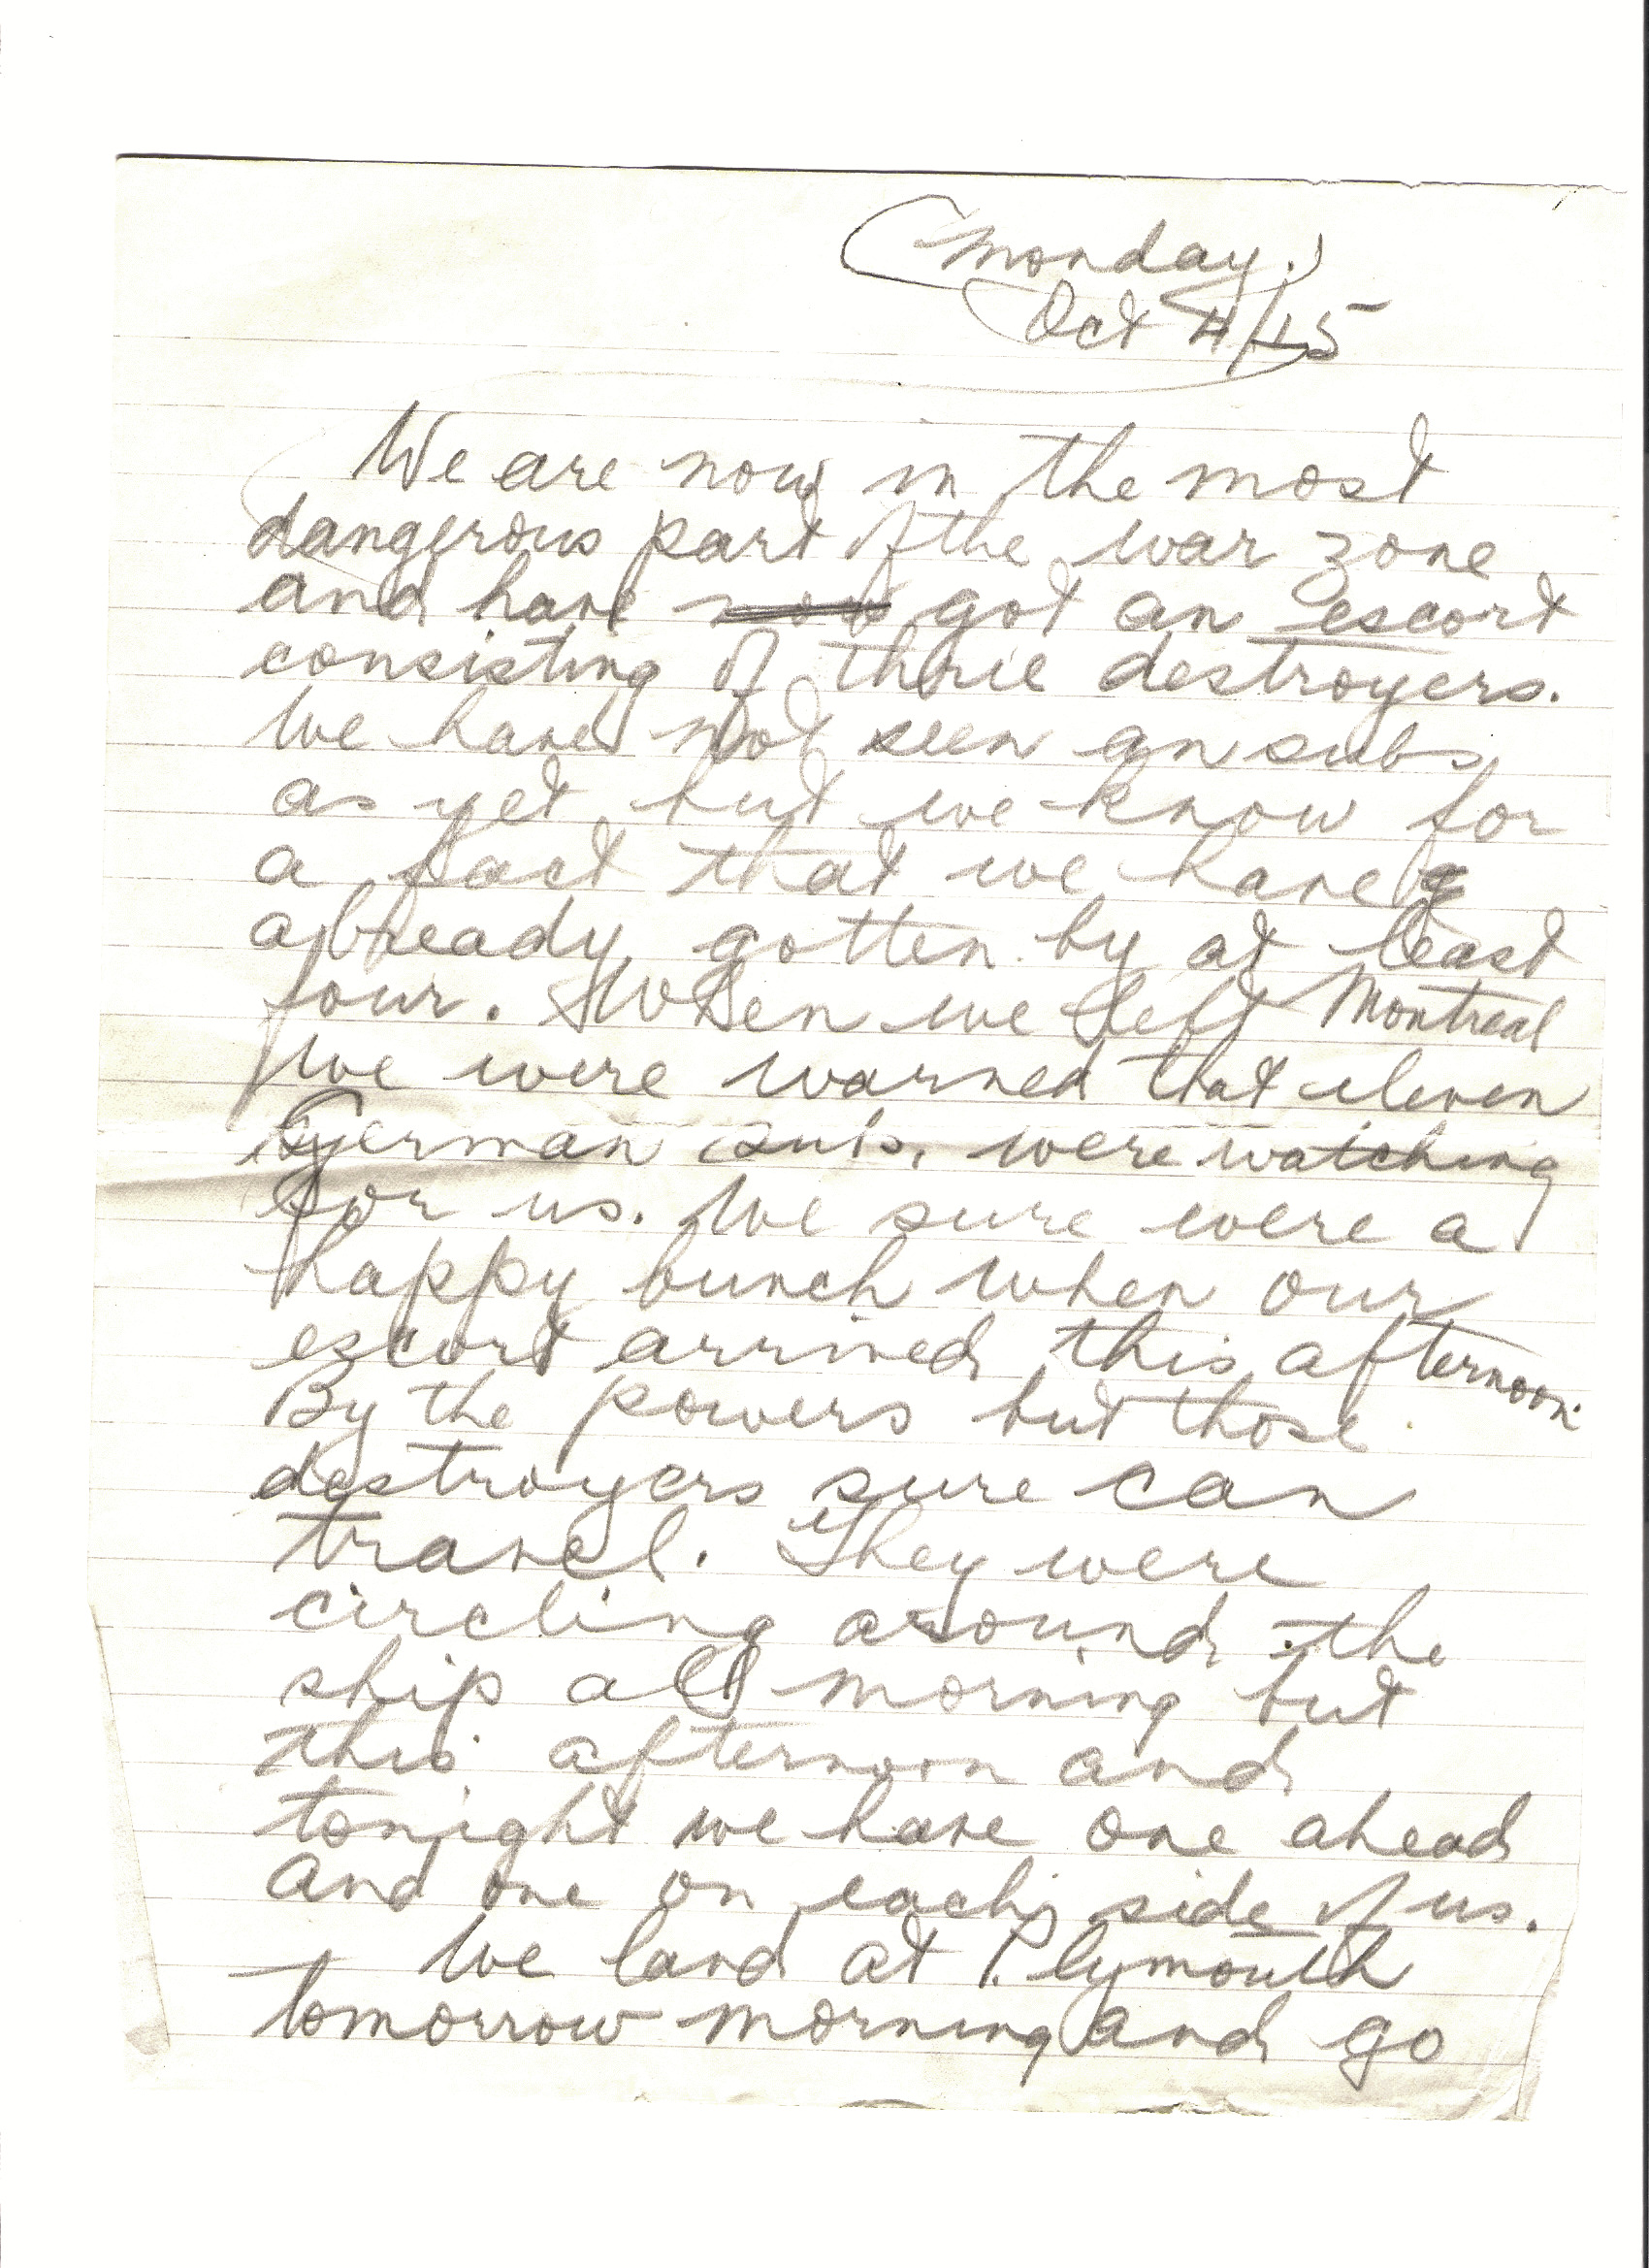 Monday.
Oct 4/15
We are now in the most
dangerous part of the war zone
and have got an escort
consisting of three destroyers.
We have not seen an subs
as yet but we know for
a fact that we have
already gotten by at least
four. When we left Montreal
we were warned that eleven
German subs. were watching
for us. We sure were a
happy bunch when our
escort arrived this afternoon.
By the powers but those
destroyers sure can
travel. They were
circling around the
ship all morning but
this afternoon and
tonight we have one ahead
and one on each side of us.
We land at Plymouth
tomorrow morning and go